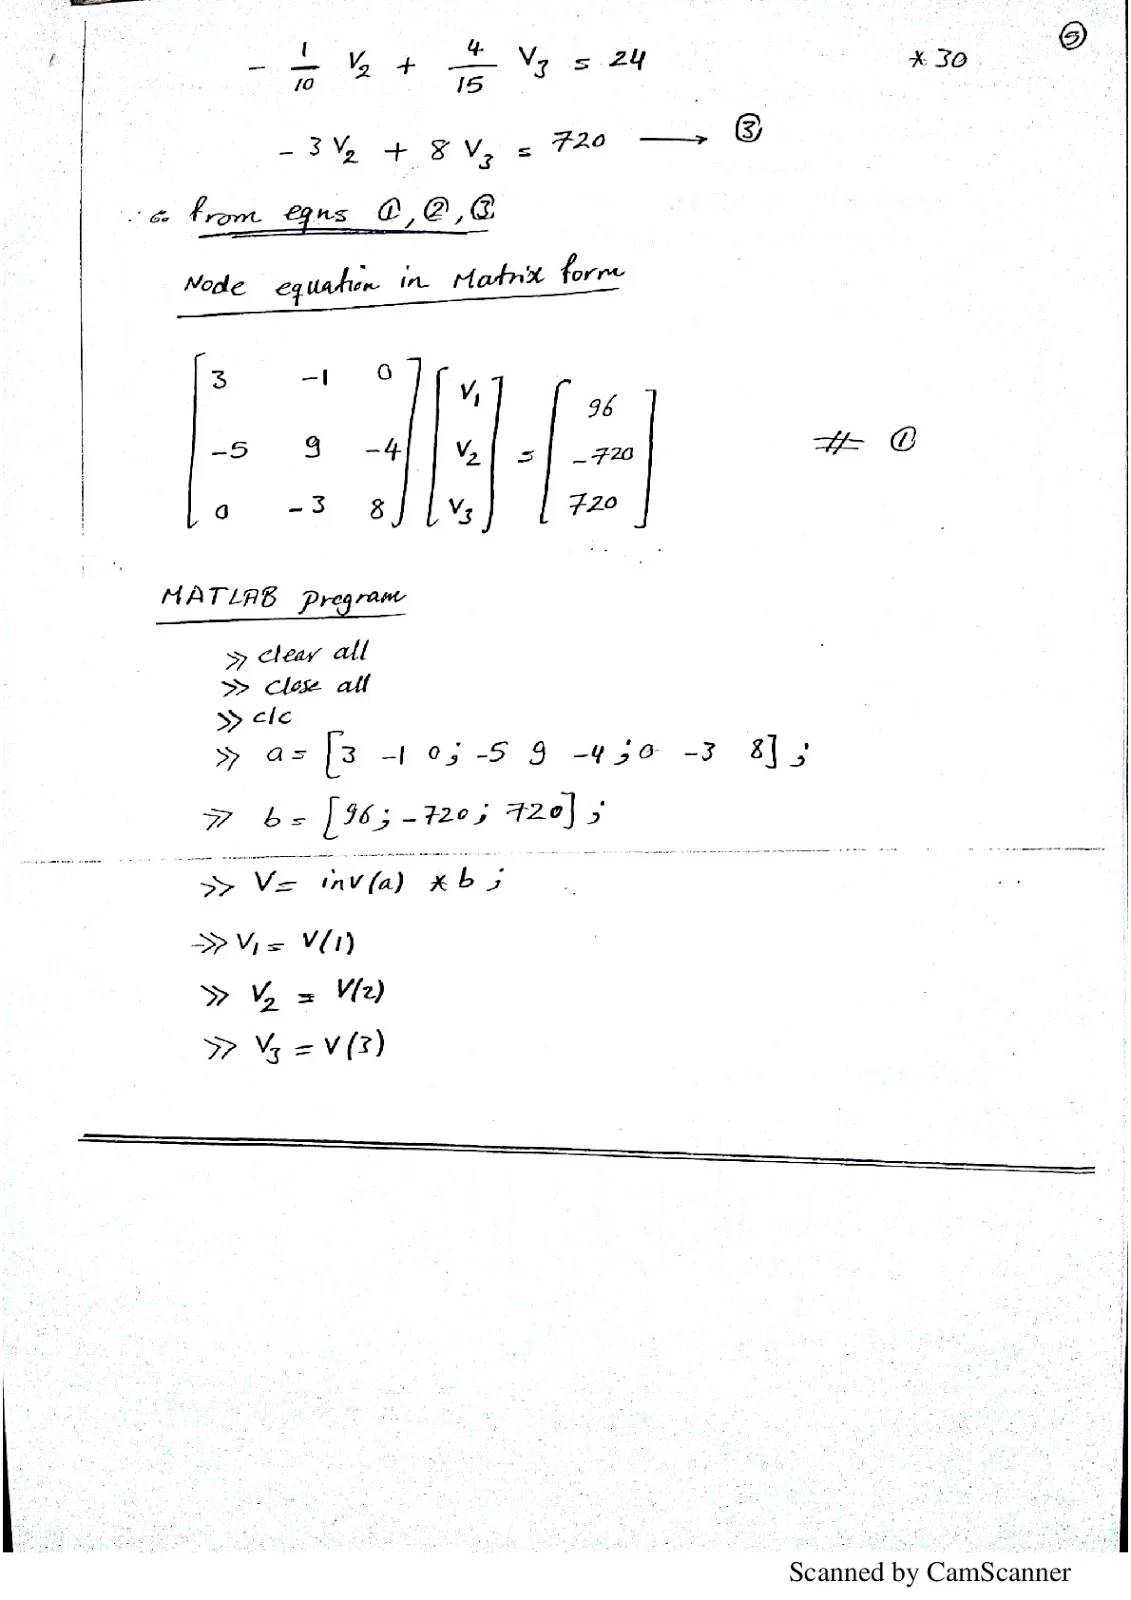 ⑤
- 1/10 V₂ + 4/15 V₃ = 24 * 30
- 3 V₂ + 8 V₃ = 720 → ③
∴ from eqns ①, ②, ③
Node equation in Matrix form
[3 -1 0] [V₁] = [96]
[-5 9 -4] [V₂] = [-720] # ①
[0 -3 8] [V₃] [720]
MATLAB program
>> clear all
>> close all
>> clc
>> a = [3 -1 0; -5 9 -4; 0 -3 8];
>> b = [96; -720; 720];
>> V = inv(a) * b;
>> V₁ = V(1)
>> V₂ = V(2)
>> V₃ = V(3)
Scanned by CamScanner